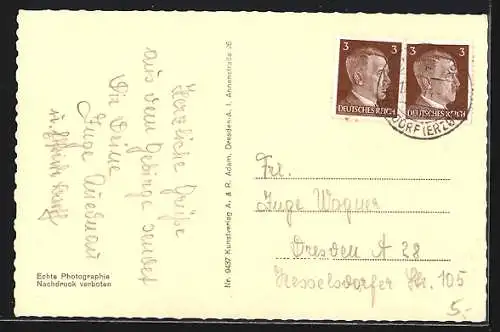 Herzliche Grüße
aus dem Gebirge sendet
Dir Deine
Inge
u.
Echte Photographie
Nachdruck verboten
Nr. 9437 Kunstverlag A. & R. Adam, Dresden-A. 1, Annenstraße 26
3 3
DEUTSCHES REICH
3 3
DEUTSCHES REICH
DORF (ERZGEB
Frl.
Inge Wagner
Dresden A 28
Kesselsdorfer Str. 105
5.-